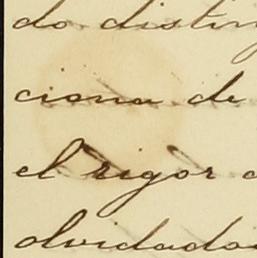 do disting
ciona de
el rigor
olvidado